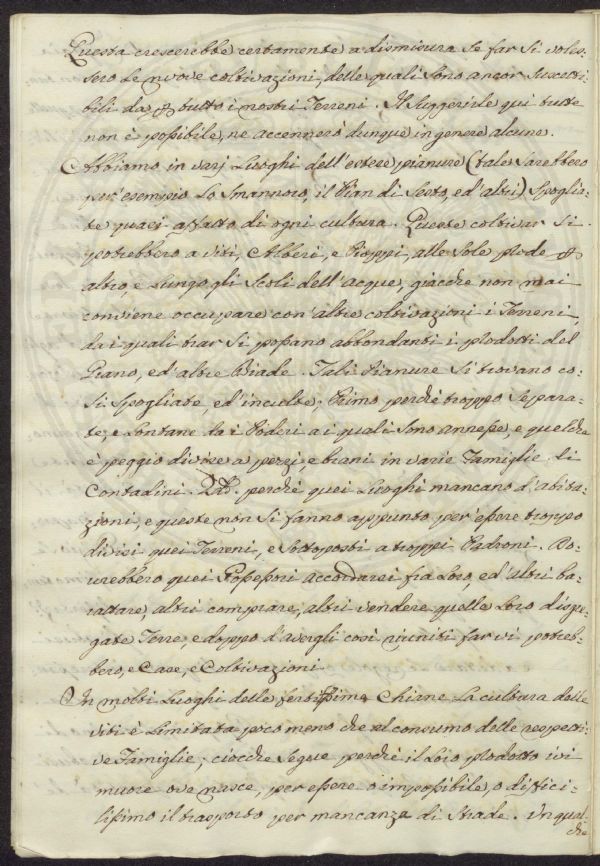 Questa crescerebbe certamente a dismisura se far si voles-
sero le nuove coltivazioni, delle quali sono ancor suscetti-
bili da p tutto i nostri Terreni. Il suggerirle qui tutte
non è possibile, ne accennerò dunque in genere alcune.
Abbiamo in varj Luoghi dell'estese pianure (tale sarebbero
per esempio Lo Smannoro, il Pian di Sesto, ed'altri) spoglia-
te quasi affatto di ogni cultura. Queste coltivar si
potrebbero a viti, Alberi, e Pioppi, alle sole prode p
altro, e lungo gli scoli dell'acque, giacche non mai
conviene occupare con'altre coltivazioni i Terreni,
da i quali trar si possano abbondanti i prodotti del
Grano, ed'altre Biade. Tali Pianure si trovano co-
si spogliate, ed'inculte; Primo perchè troppo separa-
te, e lontane da i Poderi a i quali sono annesse, e quel che
è peggio divise a pezzi, e brani in varie Famiglie di
Contadini. 2.do perchè quei Luoghi mancano d'abita-
zioni, e queste non si fanno appunto per essere troppo
divisi quei Terreni, e sottoposti a troppi Padroni. Do-
vrebbero quei Possessori accordarsi fra loro, ed'altri ba-
rattare, altri comprare, altri vendere quelle loro disgre-
gate Terre, e doppo d'avergli così riuniti far vi potreb-
bero, e Case, e Coltivazioni.
In molti Luoghi delle fertilissime Chiane la cultura delle
viti è limitata poco meno che al consumo delle respetti-
ve Famiglie; ciocche segue perchè il loro prodotto ivi
muore ove nasce, per essere o impossibile, o diffici-
lissimo il trasporto per mancanza di strade. Un qual-
che